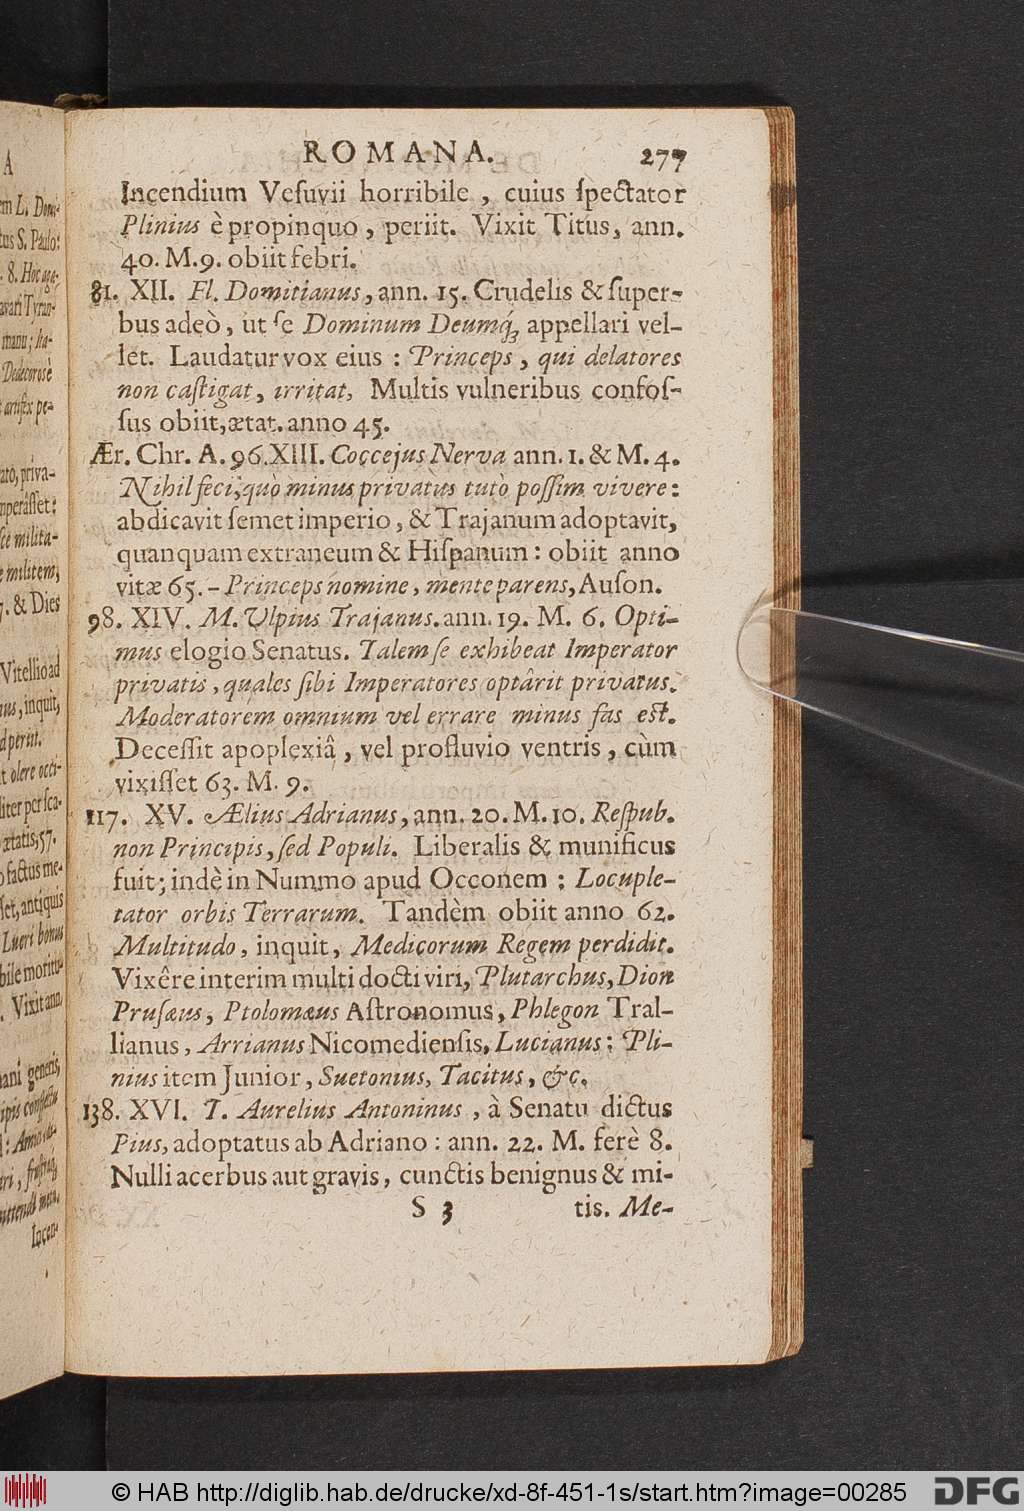 ROMANA. 277
Incendium Veſuvii horribile, cuius ſpectator
Plinius è propinquo, periit. Vixit Titus, ann.
40. M. 9. obiit febri.
81. XII. Fl. Domitianus, ann. 15. Crudelis & ſuper-
bus adeò, ut ſe Dominum Deumq́; appellari vel-
let. Laudatur vox eius: Princeps, qui delatores
non caſtigat, irritat, Multis vulneribus confoſ-
ſus obiit, ætat. anno 45.
Ær. Chr. A. 96. XIII. Coccejus Nerva ann. 1. & M. 4.
Nihil feci, quò minus privatus tutò poſſim vivere:
abdicavit ſemet imperio, & Trajanum adoptavit,
quanquam extraneum & Hiſpanum: obiit anno
vitæ 65. - Princeps nomine, mente parens, Auſon.
98. XIV. M. Ulpius Trajanus. ann. 19. M. 6. Opti-
mus elogio Senatus. Talem ſe exhibeat Imperator
privatis, quales ſibi Imperatores optârit privatus.
Moderatorem omnium vel errare minus fas eſt.
Deceſſit apoplexiâ, vel profluvio ventris, cùm
vixiſſet 63. M. 9.
117. XV. Ælius Adrianus, ann. 20. M. 10. Reſpub.
non Principis, ſed Populi. Liberalis & munificus
fuit; indè in Nummo apud Occonem: Locuple-
tator orbis Terrarum. Tandèm obiit anno 62.
Multitudo, inquit, Medicorum Regem perdidit.
Vixêre interim multi docti viri, Plutarchus, Dion
Pruſæus, Ptolomæus Aſtronomus, Phlegon Tral-
lianus, Arrianus Nicomedienſis, Lucianus: Pli-
nius item Junior, Suetonius, Tacitus, &c.
138. XVI. T. Aurelius Antoninus, à Senatu dictus
Pius, adoptatus ab Adriano: ann. 22. M. ferè 8.
Nulli acerbus aut gravis, cunctis benignus & mi-
S 3 tis. Me-
© HAB http://diglib.hab.de/drucke/xd-8f-451-1s/start.htm?image=00285
DFG